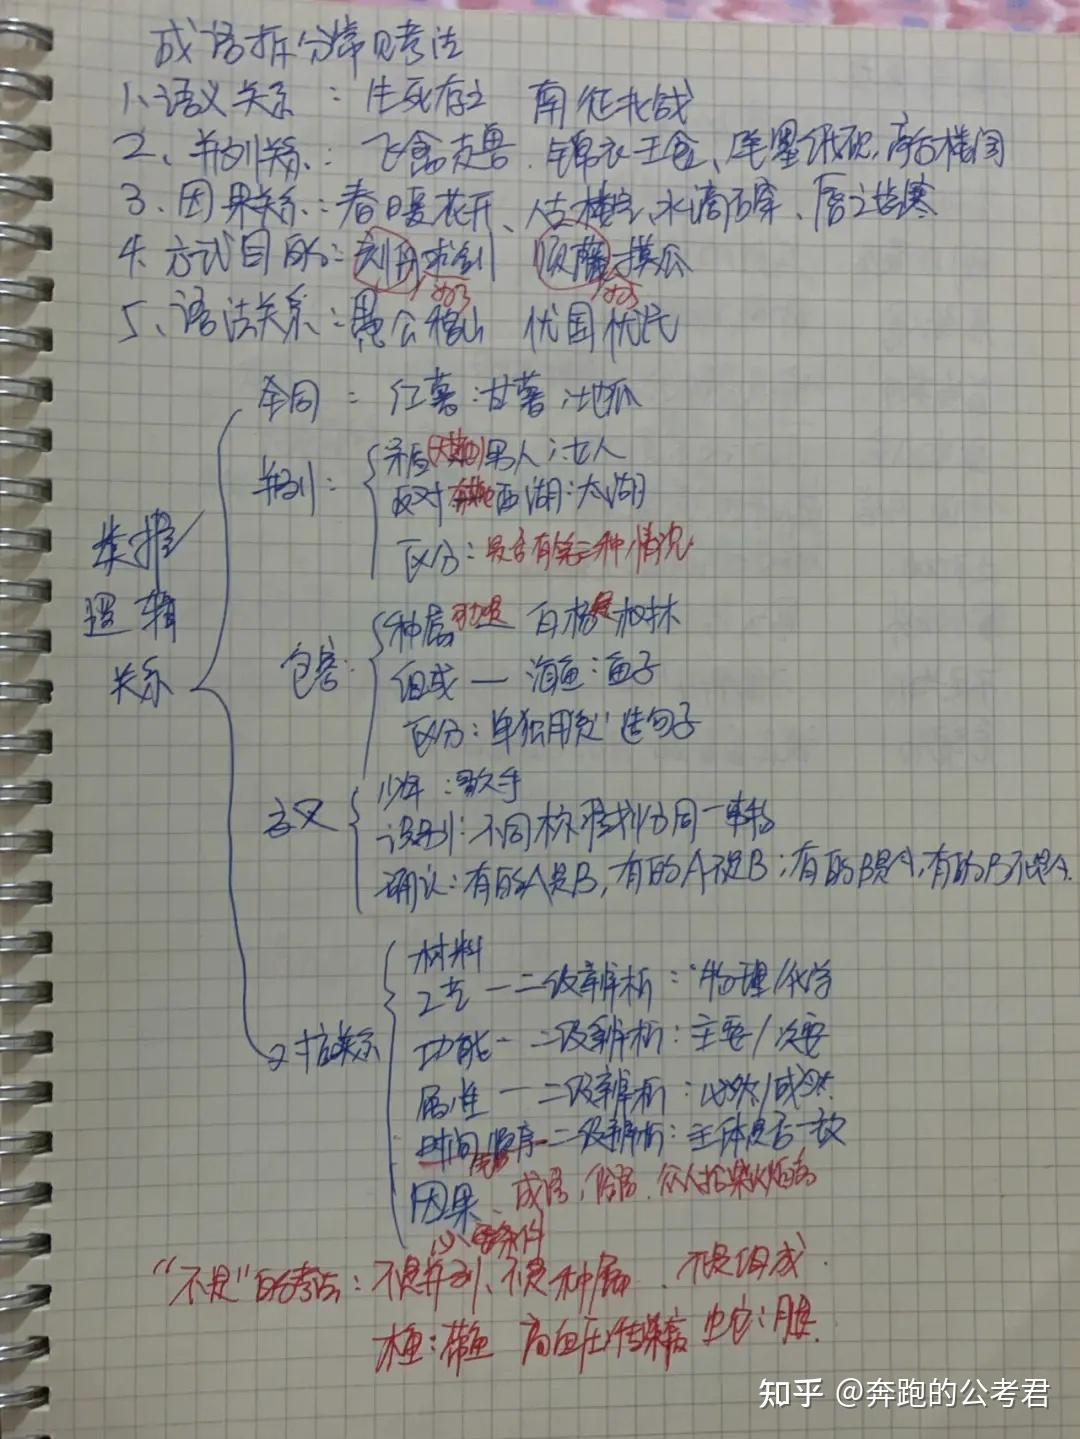 成语拆分常见考法
1、语义关系：生死存亡 南征北战
2、并列关系：飞禽走兽、锦衣玉食、笔墨纸砚、亭台楼阁
3、因果关系：春暖花开、人去楼空、水滴石穿、唇亡齿寒
4、方式目的：刻舟求剑 顺藤摸瓜
5、语法关系：愚公移山 忧国忧民
类推逻辑关系
全同：红薯：甘薯：地瓜
并列：
矛盾 男人：女人
反对 西湖：太湖
区分：是否有第三种情况
包容：
种属 白杨 树木
组成 — 鱼：鱼子
区分：单独用“是”造句子
交叉
少年：歌手
识别：不同标准划分同一事物
确认：有的A是B，有的A不是B；有的B是A，有的B不是A。
对应关系
材料
工艺 — 二级辨析：物理/化学
功能 — 二级辨析：主要/次要
属性 — 二级辨析：必然/或然
时间顺序 — 二级辨析：主体是否一致
因果、成语、俗语、众人拾柴火焰高
必要条件
“不是”的考点：不是并列、不是种属、不是组成.
：高血压：传染病
知乎 @奔跑的公考君